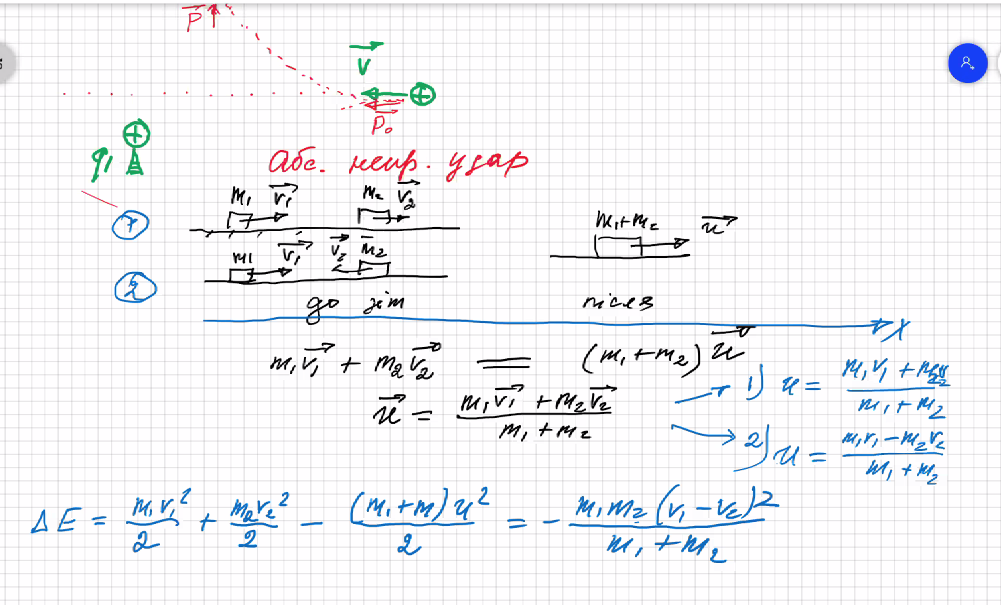 P
V
P₀
q₁
Абс. непр. удар
m₁ v₁ m₂ v₂
1
m₁+m₂ u
m₁ v₁ v₂ m₂
2
до після
X
m₁v₁ + m₂v₂ = (m₁+m₂) u
u = (m₁v₁ + m₂v₂) / (m₁ + m₂)
1) u = (m₁v₁ + m₂v₂) / (m₁ + m₂)
2) u = (m₁v₁ − m₂v₂) / (m₁ + m₂)
ΔE = m₁v₁²/2 + m₂v₂²/2 − (m₁+m)u²/2 = − m₁m₂(v₁ − v₂)² / (m₁ + m₂)